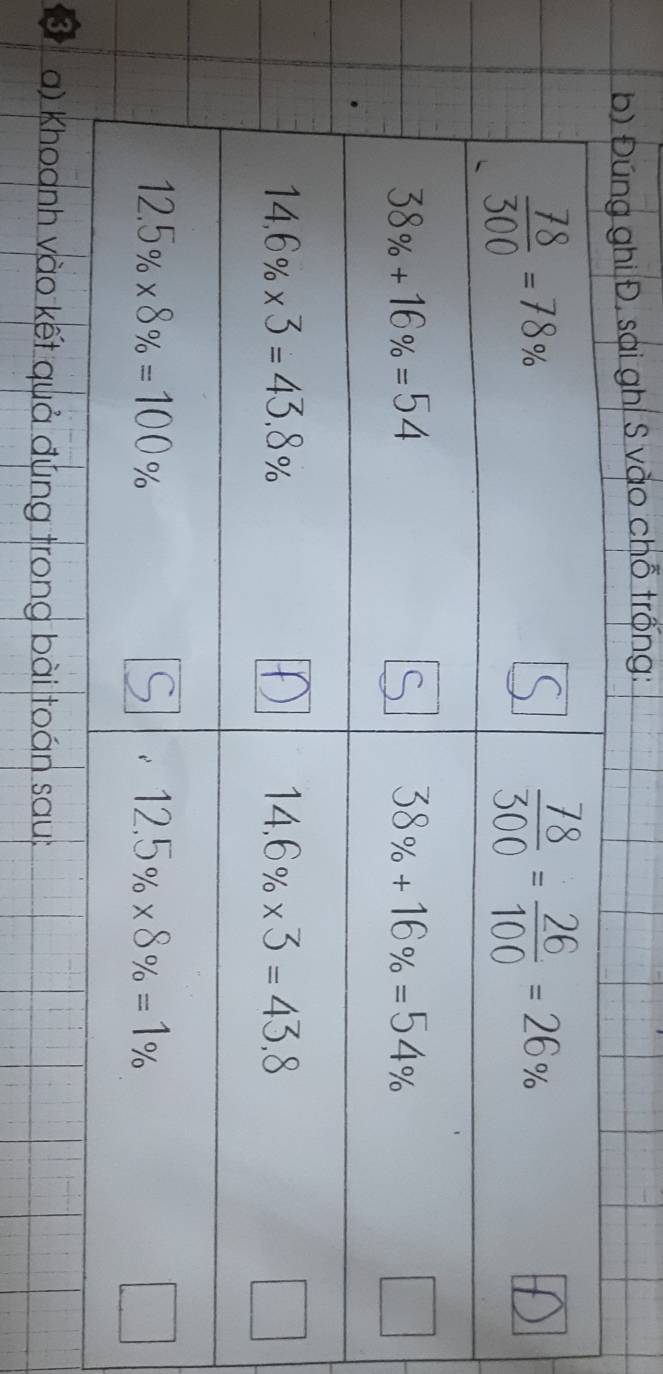 b) Đúng ghi Đ, sai ghi S vào chỗ trống:
78/300 = 78% S 78/300 = 26/100 = 26% Đ
38% + 16% = 54 S 38% + 16% = 54%
14,6% × 3 = 43,8% Đ 14,6% × 3 = 43,8
12,5% × 8% = 100% S 12,5% × 8% = 1%
3 a) Khoanh vào kết quả đúng trong bài toán sau: